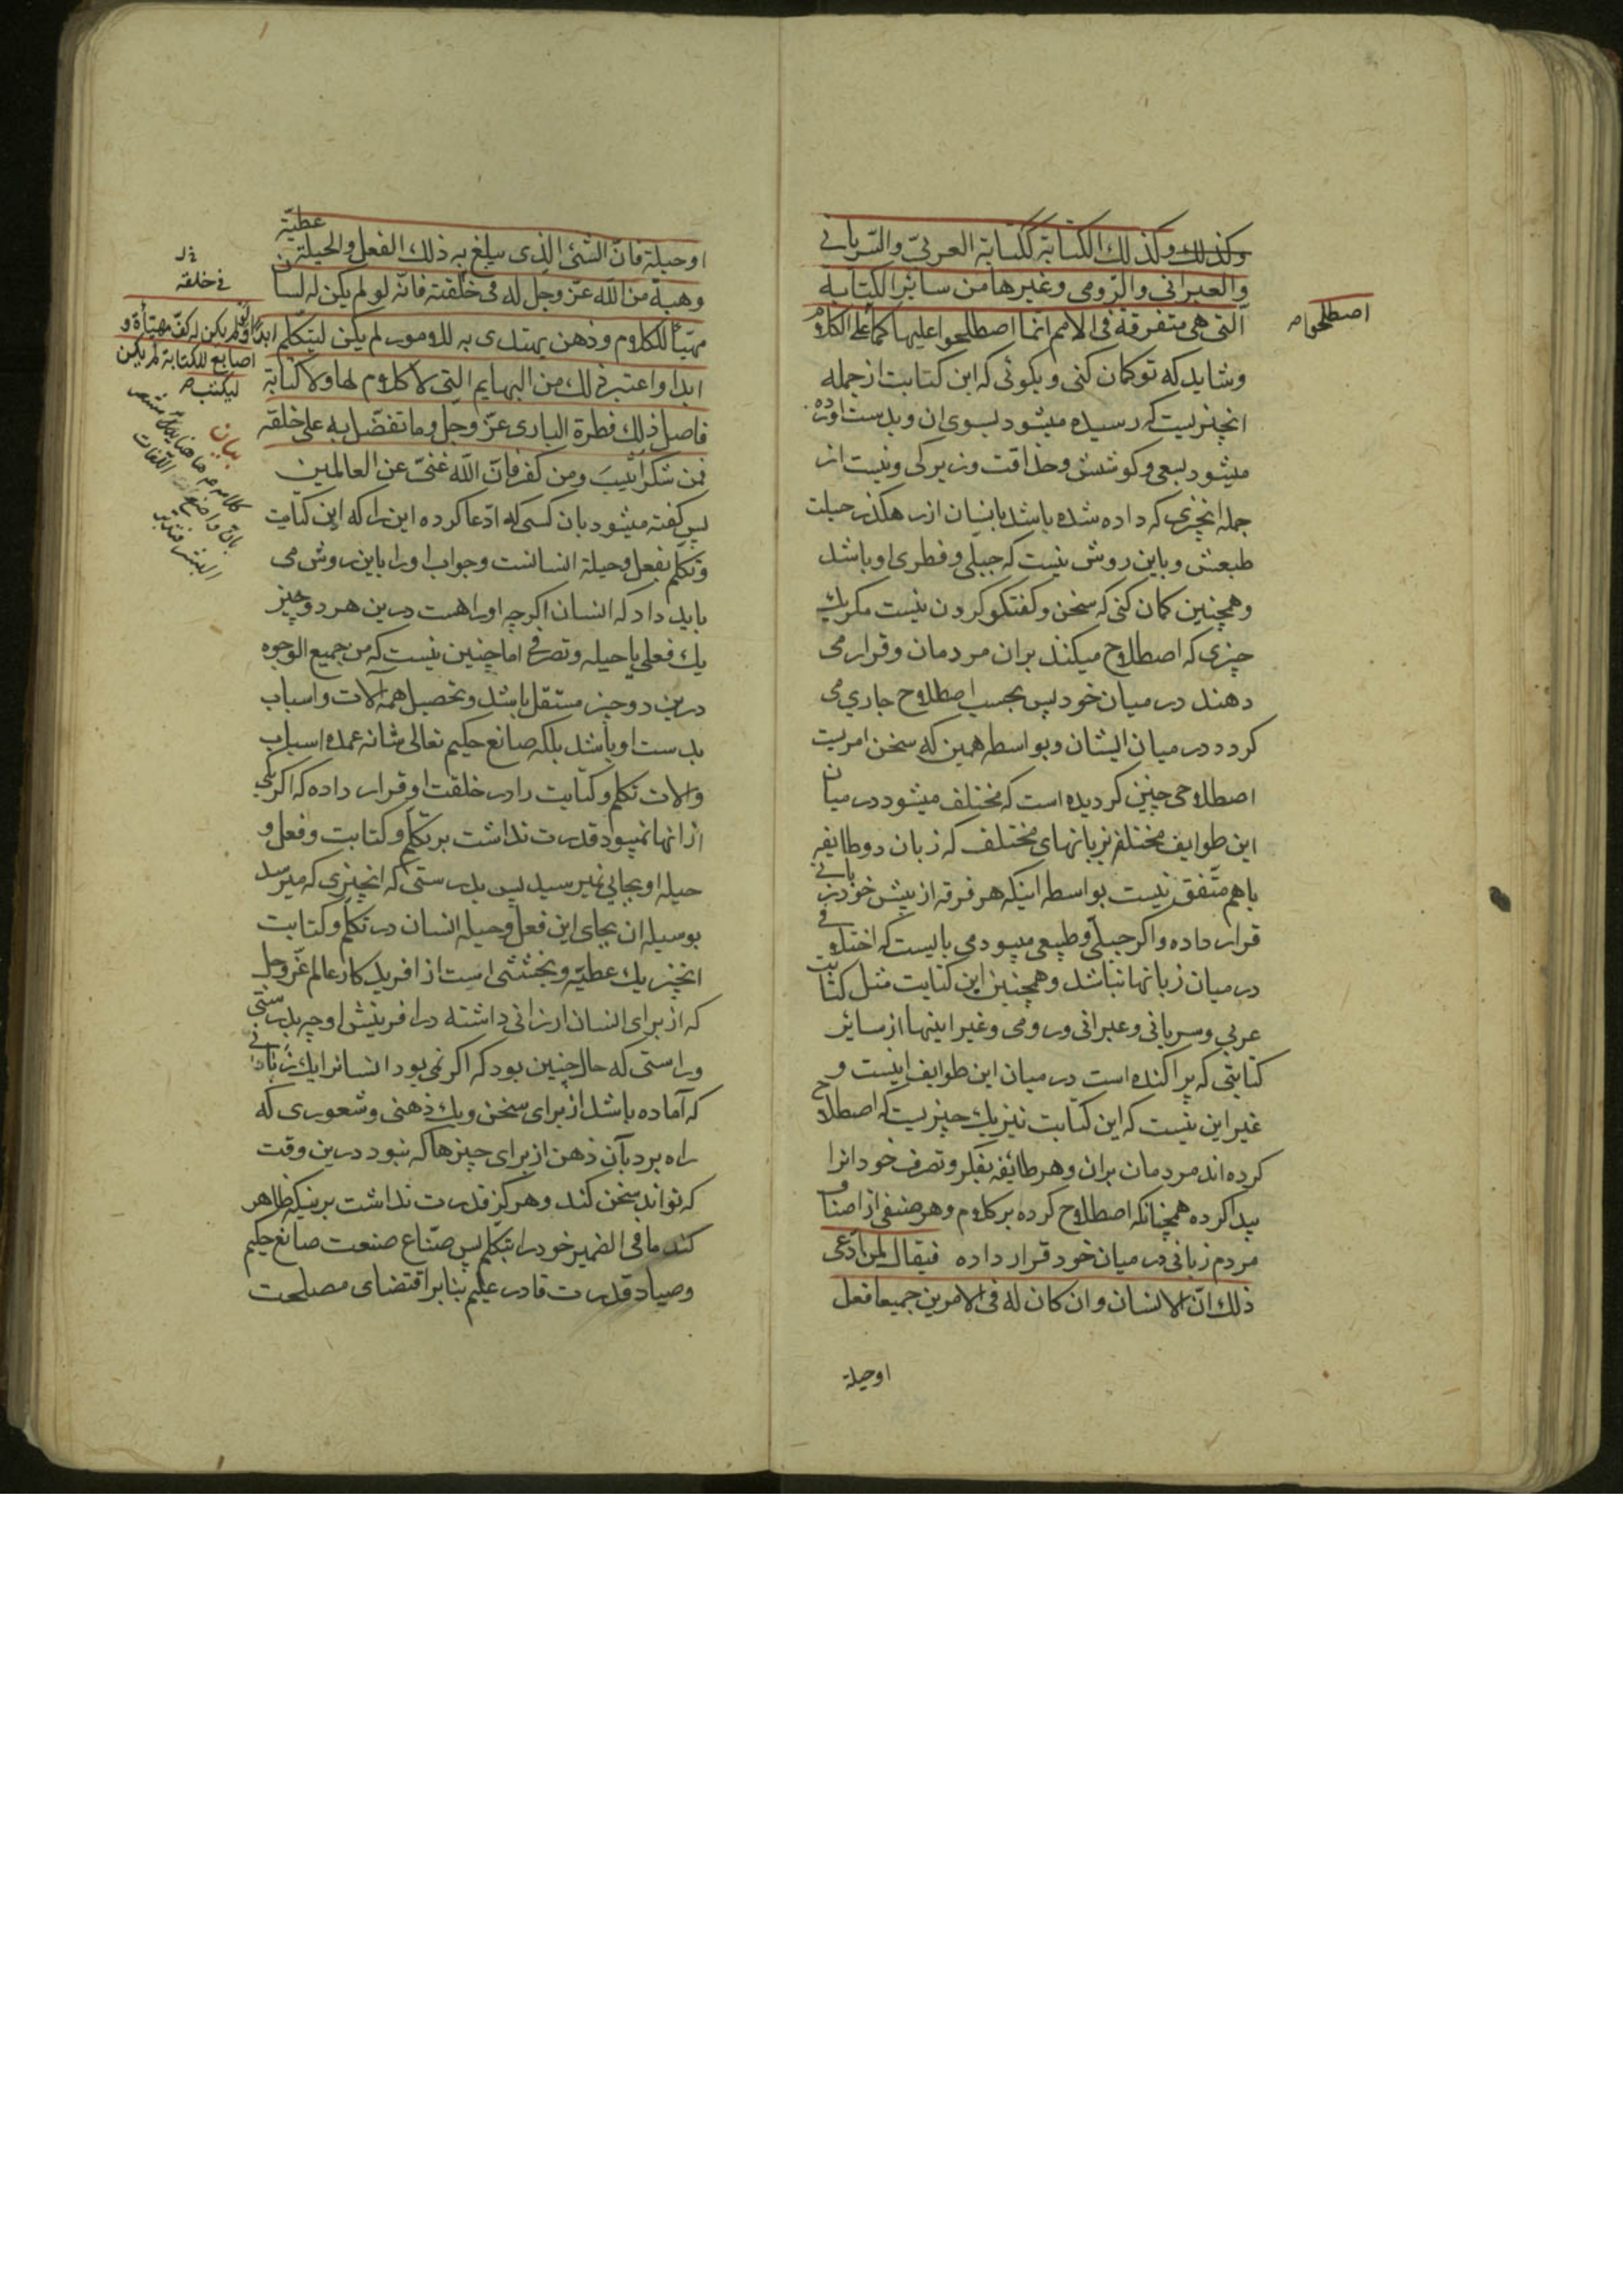 وكذلك وكذلك الكتابة ككتابة العربيّ والسّرياني
والعبراني والرّومي وغيرها من سائر الكتابة
الّتي هي متفرقة في الامم انما اصطلحوا عليها كما على الكلام
اصطلحوا صـ
وشاید که تو کمان کنی و بکوئی که این کتابت از جمله
انچیزیست که رسیده میشود بسوی ان و بدست اورده
میشود بسعی و کوشش و حذاقت و زیرکی و نیست از
جمله انچیزی که داده شده باشد بانسان از رهکذر جبلت
طبعش و باین روش نیست که جبلی و فطری او باشد
وهمچنین کمان کنی که سخن و کفتکو کردن نیست مکر یک
چیزی که اصطلاح میکنند بران مردمان و قرار می
دهند در میان خود پس بحسب اصطلاح جاری می
کردد در میان ایشان و بواسطه همین که سخن امریست
اصطلاحی چنین کردیده است که مختلف میشود در میان
این طوایف مختلفه بزبانهای مختلف که زبان دو طایفه
باهم متّفق نیست بواسطه اینکه هر فرقه از پیش خود زبانی
قرار داده واکر جبلّی و طبیعی میبود می بایست که اختلافی
در میان زبانها نباشد و همچنین این کتابت مثل کتابت
عربی وسریانی وعبرانی ورومی وغیر اینها از سائر
کتابتی که پراکنده است در میان این طوایف اینست و
غیر این نیست که این کتابت نیز یک چیزیست که اصطلاح
کرده اند مردمان بران وهر طائفه بفکر وتصرف خود انرا
پیدا کرده همچنانکه اصطلاح کرده بر کلام وهر صنفی از اصناف
مردم زبانی در میان خود قرار داده فیقال لمن ادّعی
ذلك انّ الانسان وان كان له في الامرين جميعا فعل
اوحیلة
اوحيلة فانّ الشّئ الّذي يبلغ به ذلك الفعل والحيلة عطيّة
وهبة من الله عزّ وجلّ له في خلقته فانّه لو لم يكن له لسان
في خلقه
مهيّأ للكلام وذهن يهتدي به للامور لم يكن ليتكلّم
ابدا ولو لم يكن له كفّ مهيّأة و
اصابع للكتابة لم يكن
ليكتب صـ
ابدا واعتبر ذلك من البهايم الّتي لا كلام لها ولا كتابة
فاصل ذلك فطرة الباری عزّ وجلّ وما تفضّل به علی خلقه
فمن شكر اثيب ومن كفر فانّ الله غنيّ عن العالمين
بیان
پس کفته میشود بان کسی که ادّعا کرده این را که این کتابت
وتکلّم بفعل وحیلة انسانست وجواب او را باین روش می
باید داد که انسان اکرچه او را هست درین هر دو چیز
یک فعلی یا حیله وتصرفی اما چنین نیست که من جمیع الوجوه
درین دو چیز مستقل باشد وتحصیل همه الات واسباب
بدست او باشد بلکه صانع حکیم تعالی شانه عمده اسباب
والات تکلم وکتابت را در خلقت او قرار داده که اکر یکی
از انها نمیبود قدرت نداشت بر تکلّم وکتابت وفعل و
حیله او بجایی نمیرسید پس بدرستی که انچیزی که میرسد
بوسیله ان بجای این فعل وحیله انسان در تکلّم وکتابت
انچیز یک عطیّه وبخششی است از افریدکار عالم عزّ وجلّ
که از برای انسان ارزانی داشته در افرینش او چه بدرستی
وراستی که حال چنین بود که اکر نمی بود انسانرا یک زبانی
که آماده باشد از برای سخن ویک ذهنی وشعوری که
راه برد بآن ذهن از برای چیزها که نبود درین وقت
که تواند سخن کند وهرکز قدرت نداشت برینکه ظاهر
کند ما فی الضمیر خود را بتکلم پس صنّاع صنعت صانع حکیم
وصیاد قدرت قادر علیم بنابر اقتضای مصلحت